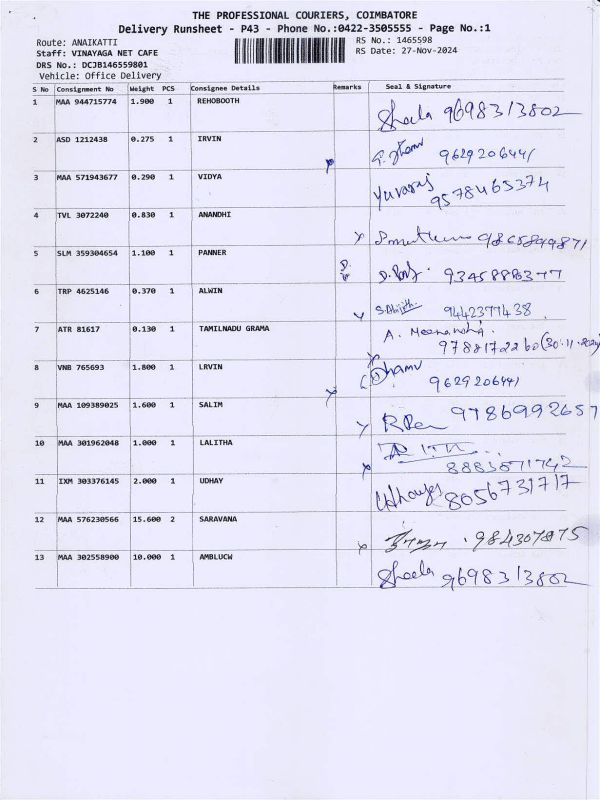 THE PROFESSIONAL COURIERS, COIMBATORE
Delivery Runsheet - P43 - Phone No.:0422-3505555 - Page No.:1
Route: ANAIKATTI RS No.: 1465598
Staff: VINAYAGA NET CAFE RS Date: 27-Nov-2024
DRS No.: DCJB146559801
Vehicle: Office Delivery
S No Consignment No Weight PCS Consignee Details Remarks Seal & Signature
1 MAA 944715774 1.900 1 REHOBOOTH Sheela 9698313802
2 ASD 1212438 0.275 1 IRVIN 9629206441
3 MAA 571943677 0.290 1 VIDYA Yuvaraj 9578465374
4 TVL 3072240 0.830 1 ANANDHI
5 SLM 359304654 1.100 1 PANNER
6 TRP 4625146 0.370 1 ALWIN 9442377438
7 ATR 81617 0.130 1 TAMILNADU GRAMA A. Meenakshi (30.11.2024)
8 VNB 765693 1.800 1 LRVIN 9629206441
9 MAA 109389025 1.600 1 SALIM 9786992657
10 MAA 301962048 1.000 1 LALITHA
11 IXM 303376145 2.000 1 UDHAY 8056731717
12 MAA 576230566 15.600 2 SARAVANA
13 MAA 302558900 10.000 1 AMBLUCW Sheela 9698313802